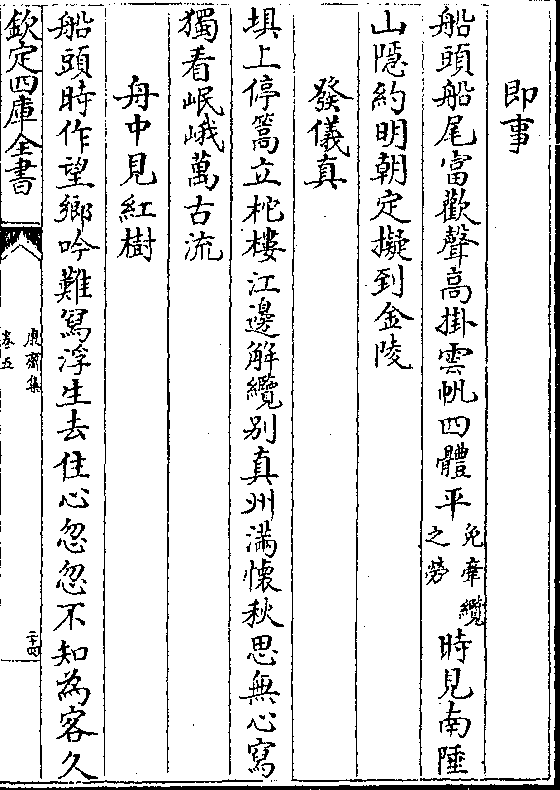 即事
船頭船尾富歡聲高掛雲帆四體平免牽纜之勞時見南陲
山隠約明朝定擬到金陵
發儀真
垻上停篙立柁樓江邊解纜别真州滿懷秋思無心寫
獨看岷峨萬古流
舟中見紅樹
船頭時作望鄉吟難寫浮生去住心忽忽不知為客久
欽定四庫全書
康齋集
卷五
二十四